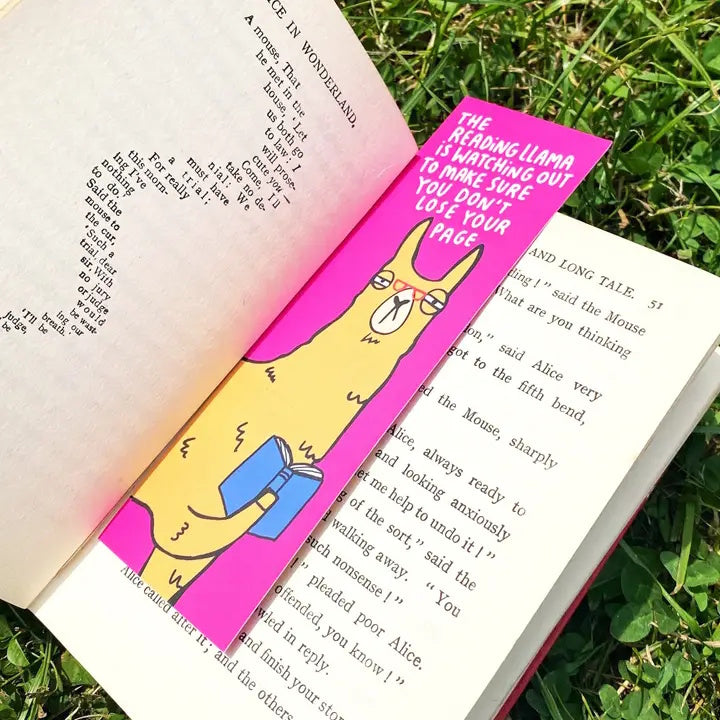 ICE IN WONDERLAND.
A mouse, That
he met in the
house, 'Let
us both go
to law: I
will prose-
cute you—
Come, I'll
take no de-
nial: We
must have
a trial;
For really
this morn-
ing I've
nothing
to do.'
Said the
mouse to
the cur,
'Such a
trial, dear
sir, With
no jury
or judge
would
be wast-
ing our
breath.'
'I'll be
judge,
be
THE
READING LLAMA
IS WATCHING OUT
TO MAKE SURE
YOU DON'T
LOSE YOUR
PAGE
AND LONG TALE. 51
ding!" said the Mouse
What are you thinking
on," said Alice very
got to the fifth bend,
ed the Mouse, sharply
Alice, always ready to
and looking anxiously
let me help to undo it!"
g of the sort," said the
walking away. "You
such nonsense!"
!" pleaded poor Alice.
offended, you know!"
wled in reply.
and finish your story
Alice called after it; and the others